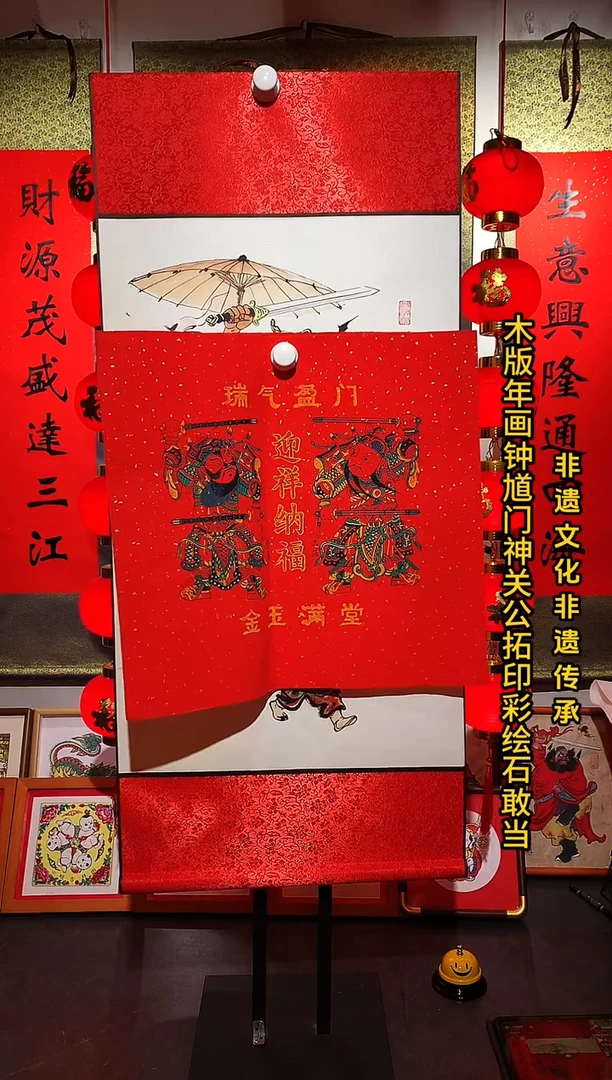 生意興隆通
財源茂盛達三江
瑞气盈门
迎祥纳福
金玉满堂
非遗文化非遗传承
木版年画钟馗门神关公拓印彩绘石敢当
福
福